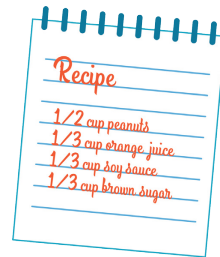 Recipe
1/2 cup peanuts
1/3 cup orange juice
1/3 cup soy sauce
1/3 cup brown sugar